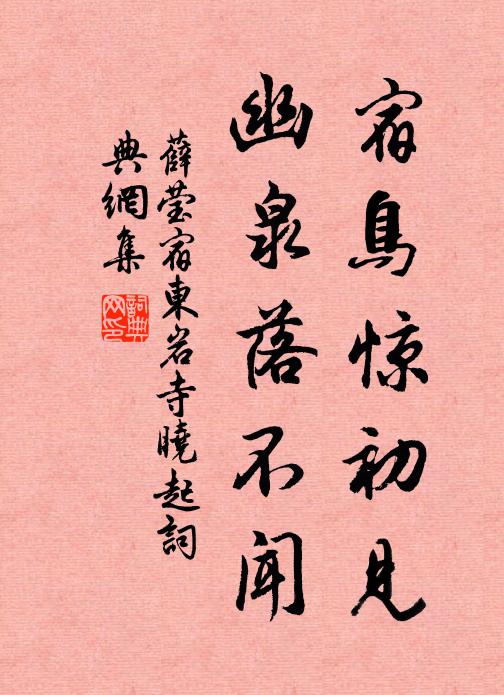 宿鳥惊初見
幽泉落不聞
薛瑩宿東岩寺曉起詞
典網集
詞典网印